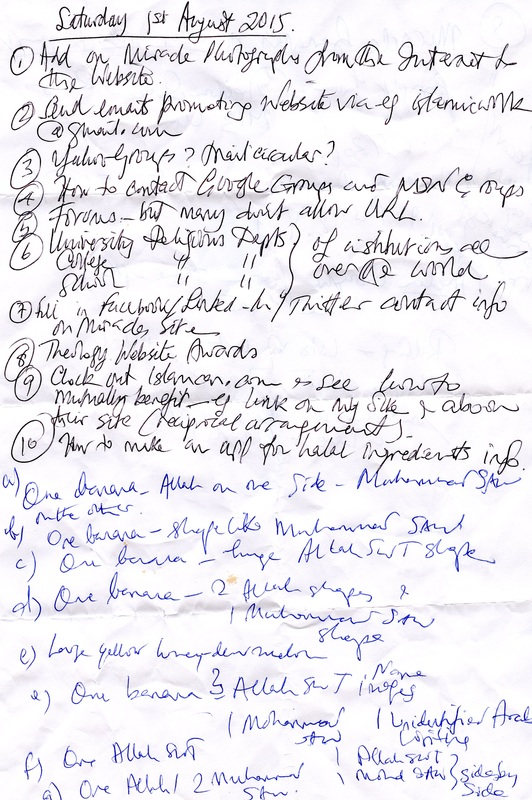 Saturday 1st August 2015.
① Add on Miracle Photographs from the Internet to
the Website.
② Send emails promoting Website via eg islamicwork
@gmail.com
③ Yahoo Groups? Email circular?
④ How to contact Google Groups and MSN Groups
⑤ Forums - but many don't allow URL.
⑥ University Religious Depts } of institutions all
College " " over the world
School " "
⑦ Fill in Facebook/Linked-In/Twitter contact info
on Miracles Site
⑧ Theology Website Awards
⑨ Check out islamcan.com to see how to
mutually benefit - eg link on my site & also on
their site (reciprocal arrangement).
⑩ How to make an app for halal ingredients info.
a) One banana - Allah on one side - Muhammad SAW
on the other.
b) One banana - shape like Muhammad SAW
c) One banana - huge Allah SWT shape
d) One banana - 2 Allah shapes &
1 Muhammad SAW
shape
e) Large yellow honey-dew melon
e) One banana 3 Allah SWT
1 Mohammad 1 Unidentified Arab
SAW writing
f) One Allah SWT 1 Allah SWT
g) One Allah / 2 Muhammad 1 Mohd SAW } side by
SAW. side